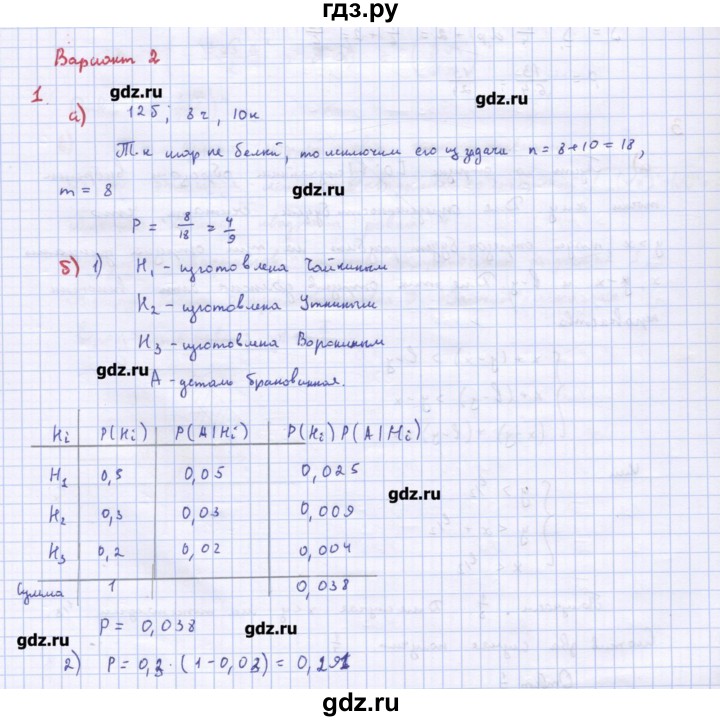 гдз.ру
Вариант 2
gdz.ru
1 а) 12б; 8г, 10к
gdz.ru
Т.к шар не белый, то исключим его из задачи n = 8+10 = 18,
m = 8
gdz.ru
P = 8/18 = 4/9
б) 1) H₁ - изготовлена Чайкиным
H₂ - изготовлена Уткиным
H₃ - изготовлена Ворониным
gdz.ru
A - деталь бракованная.
Hi P(Hi) P(A|Hi) P(Hi)P(A|Hi)
H₁ 0,5 0,05 0,025
gdz.ru
H₂ 0,3 0,03 0,009
H₃ 0,2 0,02 0,004
Сумма 1 0,038
P = 0,038
gdz.ru
gdz.ru
2) P = 0,3 · (1-0,03) = 0,291
gdz.ru